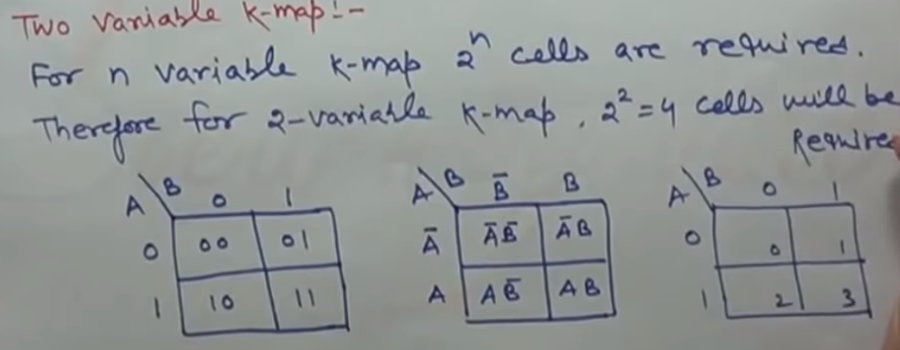 Two Variable K-map:-
For n variable K-map 2ⁿ cells are required.
Therefore for 2-variable K-map, 2² = 4 cells will be
Require
A B 0 1
0 00 01
1 10 11
A B B̅ B
A̅ A̅B̅ A̅B
A AB̅ AB
A B 0 1
0 0 1
1 2 3